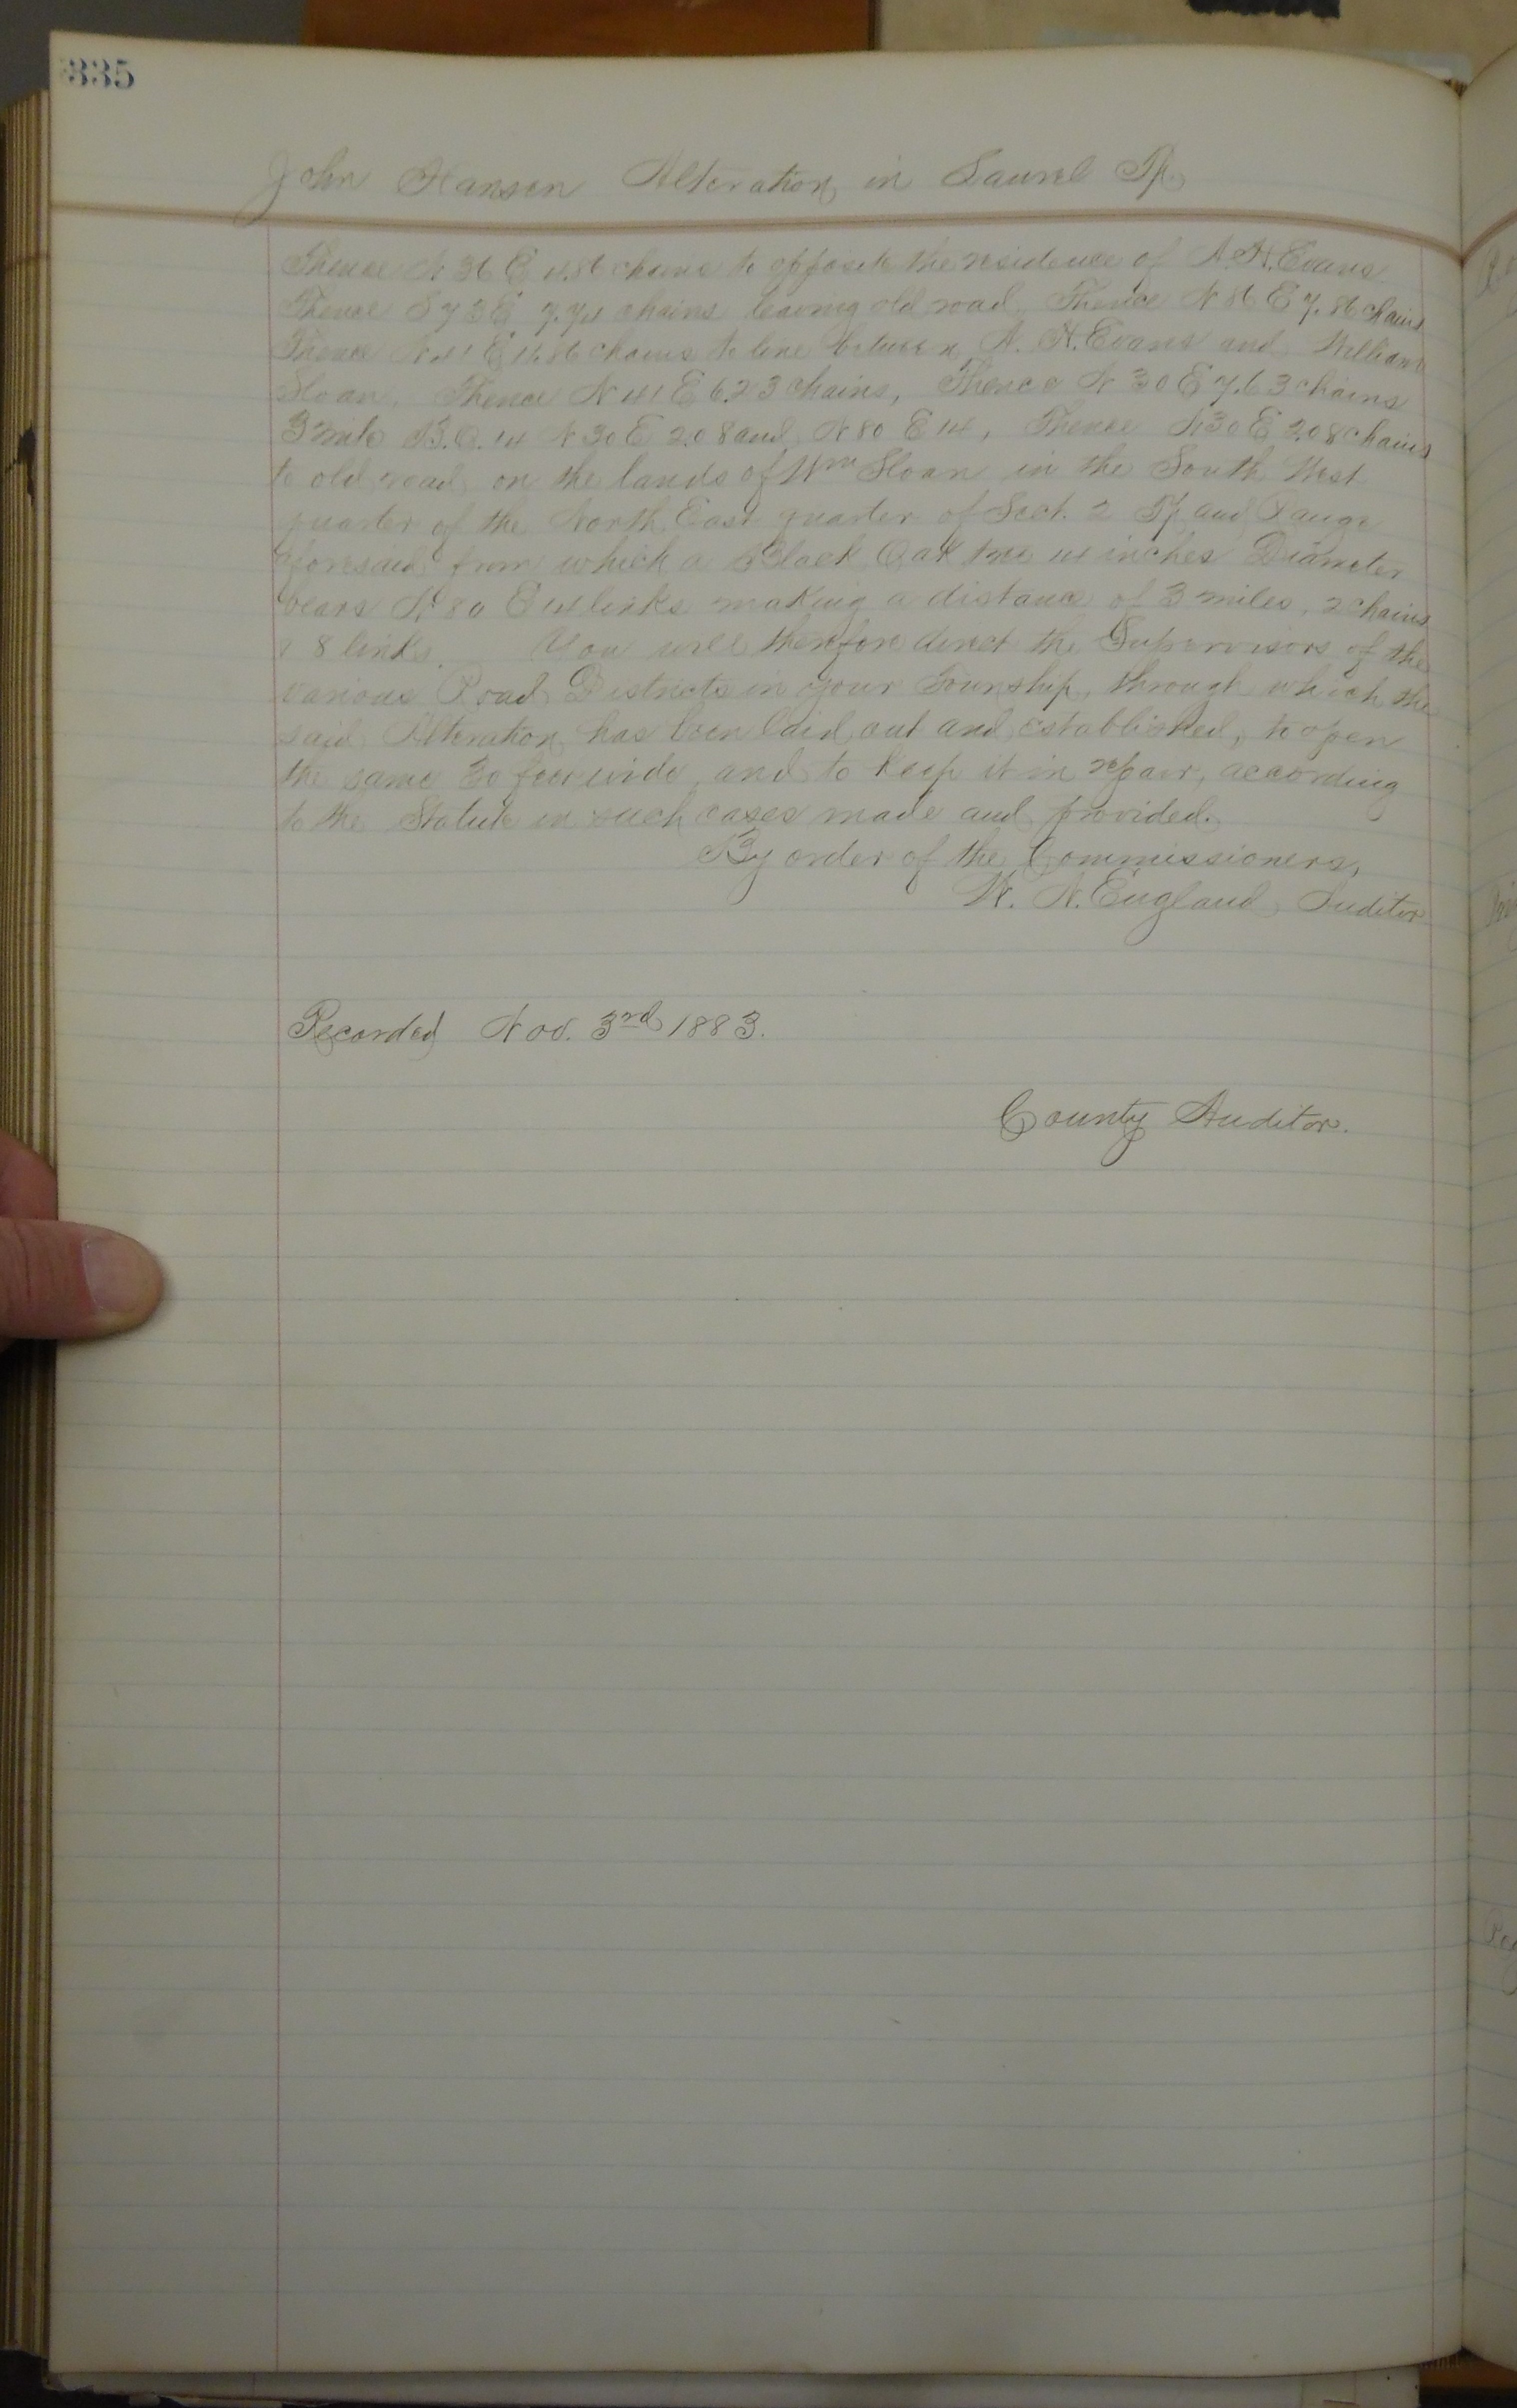 335
John Hansen Alteration in Laurel Tp.
Thence N 36 E 4.86 chains to opposite the residence of A. H. Evans
Thence S 73 E 7.74 chains leaving old road. Thence N 86 E 7.86 chains
Thence N 41 E 4.86 chains to line between A. H. Evans and William
Sloan. Thence N 41 E 6.23 chains, Thence N 30 E 7.63 chains
3 mile B.O. 14 N 30 E 2.08 and N 80 E 14, Thence N 30 E 2.08 chains
to old road on the lands of Wm Sloan in the South West
quarter of the North East quarter of Sect. 2 Tp and Range
aforesaid from which a Black Oak tree 14 inches Diameter
bears N 80 E 14 links making a distance of 3 miles, 2 chains
& 8 links. You will therefore direct the Supervisors of the
various Road Districts in your Township, through which the
said Alteration has been laid out and established, to open
the same 30 feet wide, and to keep it in repair, according
to the Statute in such cases made and provided.
By order of the Commissioners,
W. N. England, Auditor
Recorded Nov. 3rd 1883.
County Auditor.